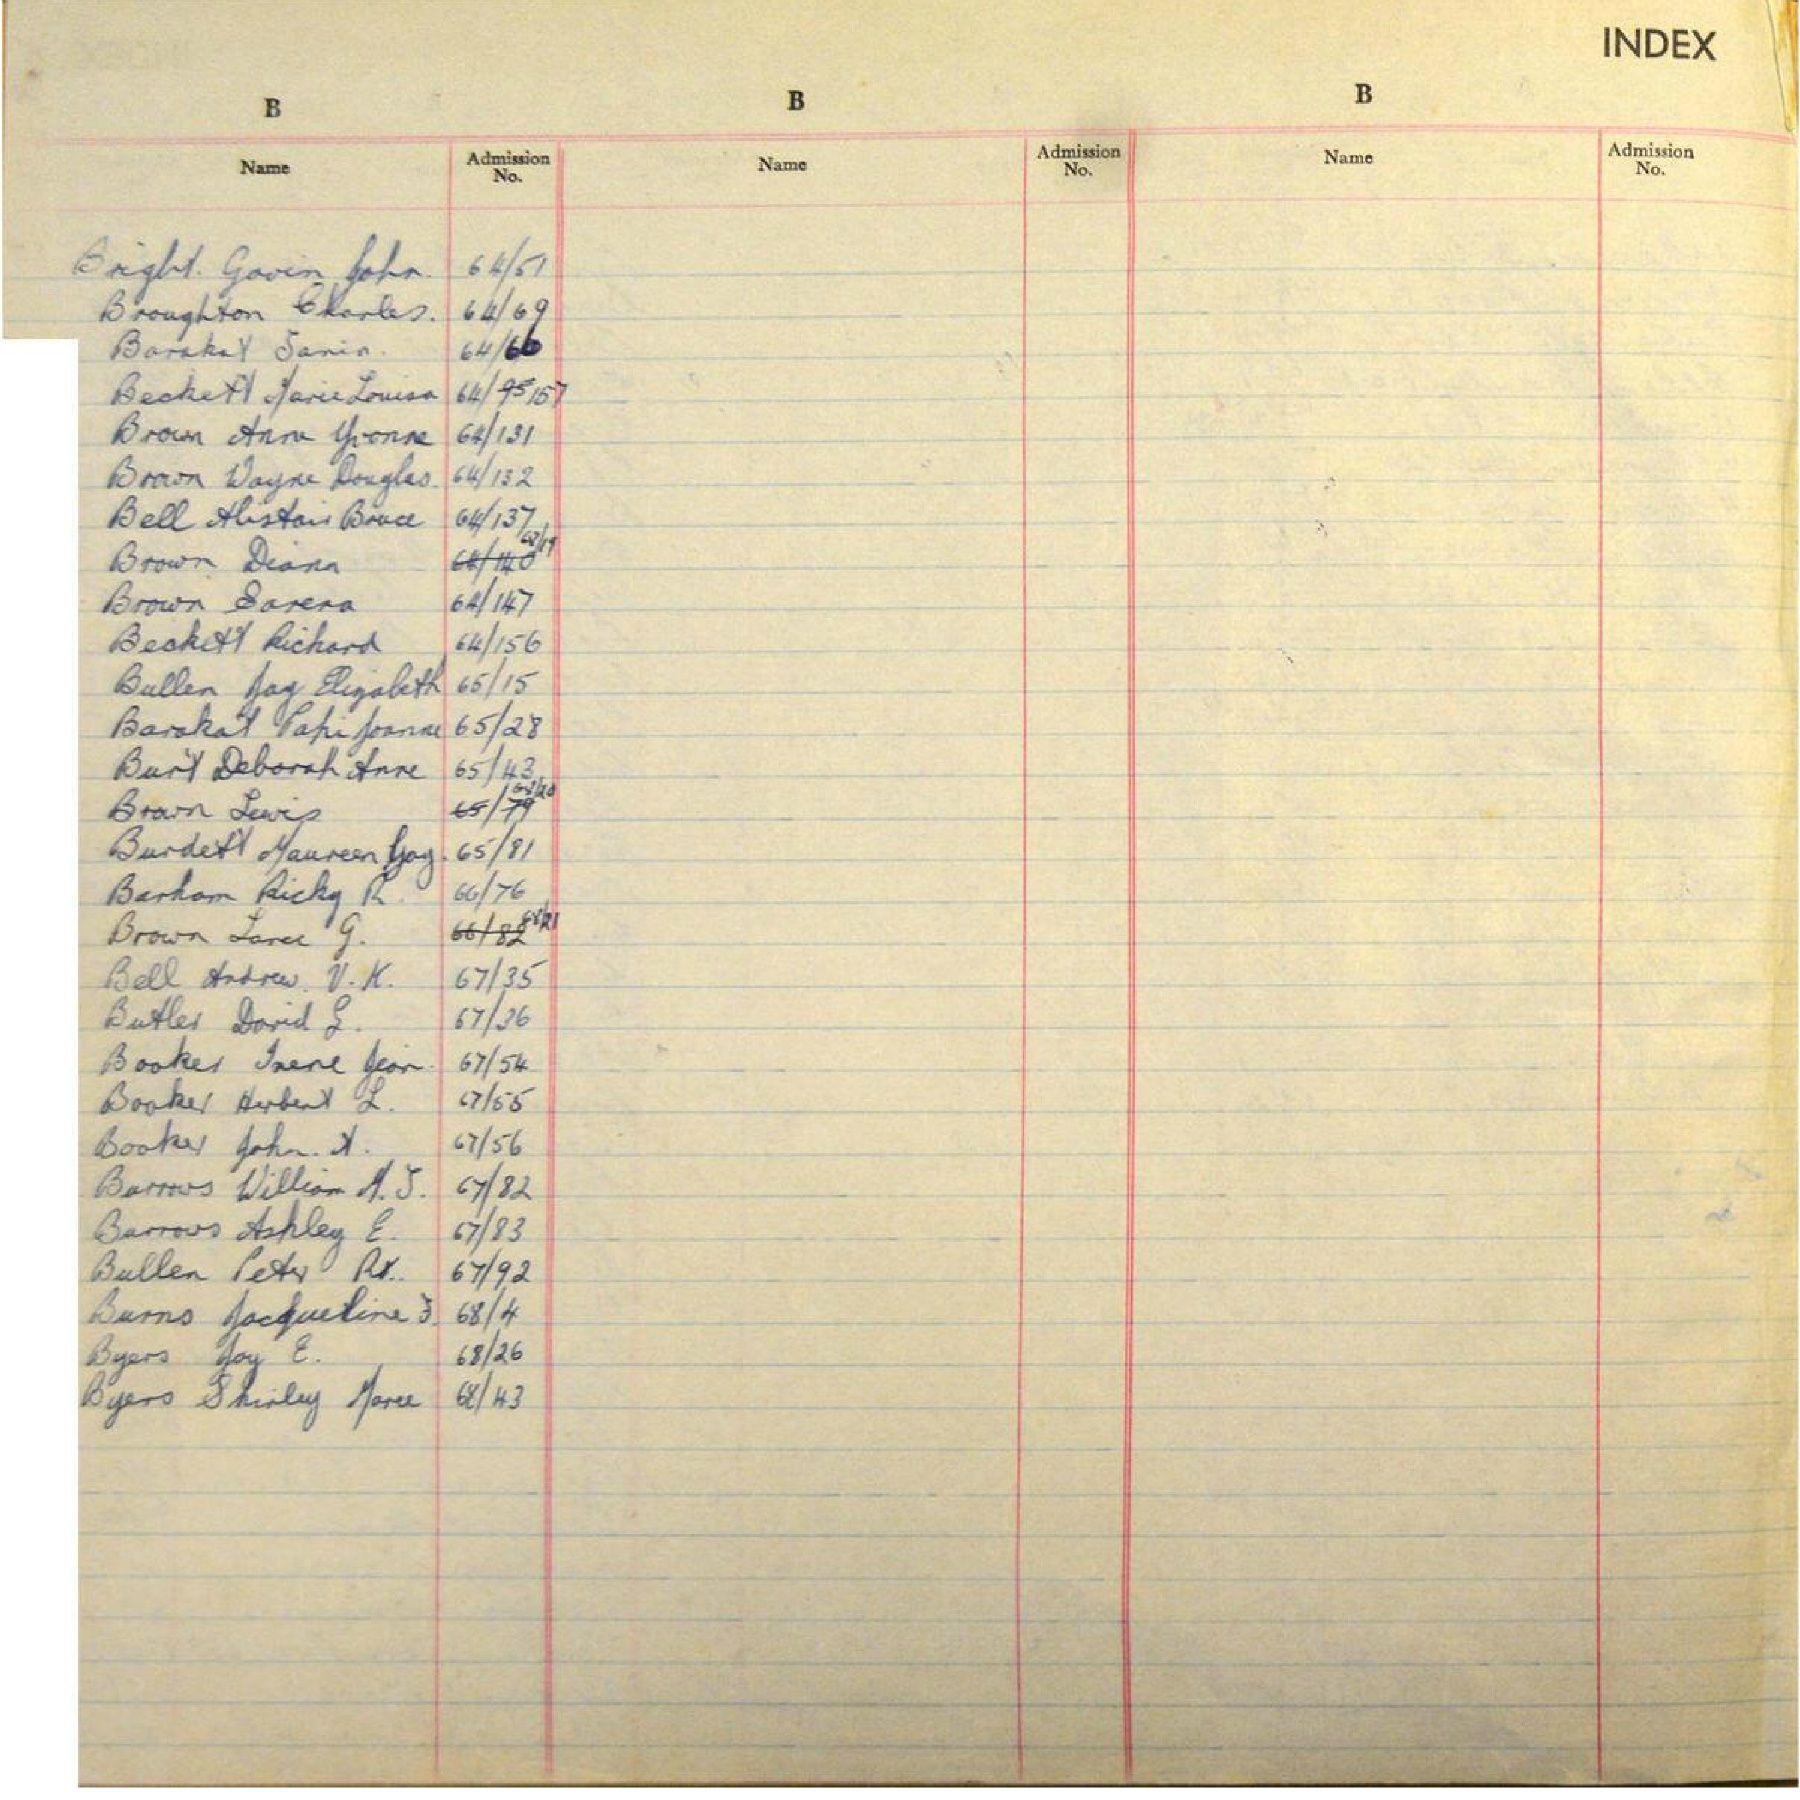 INDEX
B B B
Name Admission No. Name Admission No. Name Admission No.
Bright. Gavin John. 64/51
Broughton Charles. 64/69
Barakat 64/66
Beckett Marie Louisa 64/95 157
Brown Anne Yvonne 64/131
Brown Wayne Douglas. 64/132
Bell Alistair Bruce 64/137
Brown Diana 64/140 68/19
Brown Sarena 64/147
Beckett Richard 64/156
Bullen Joy Elizabeth 65/15
Barakat Joanne 65/28
Burt Deborah Anne 65/43
Brown Lewis 65/79 68/20
Burdett Maureen Gay. 65/81
Barham Ricky R. 66/76
Brown G. 66/82 68/21
Bell Andrew. V. K. 67/35
Butler David G. 67/36
Booker Irene Jean. 67/54
Booker Herbert L. 67/55
Booker John. A. 67/56
Barrows William A. J. 67/82
Barrows Ashley E. 67/83
Bullen Peter 67/92
Burns Jacqueline J. 68/4
Byers Joy E. 68/26
Byers Shirley Maree 68/43